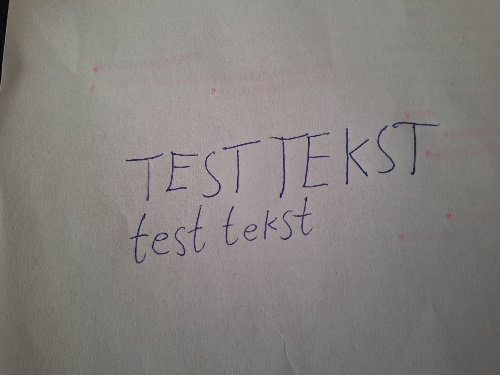 TEST TEKST
test tekst